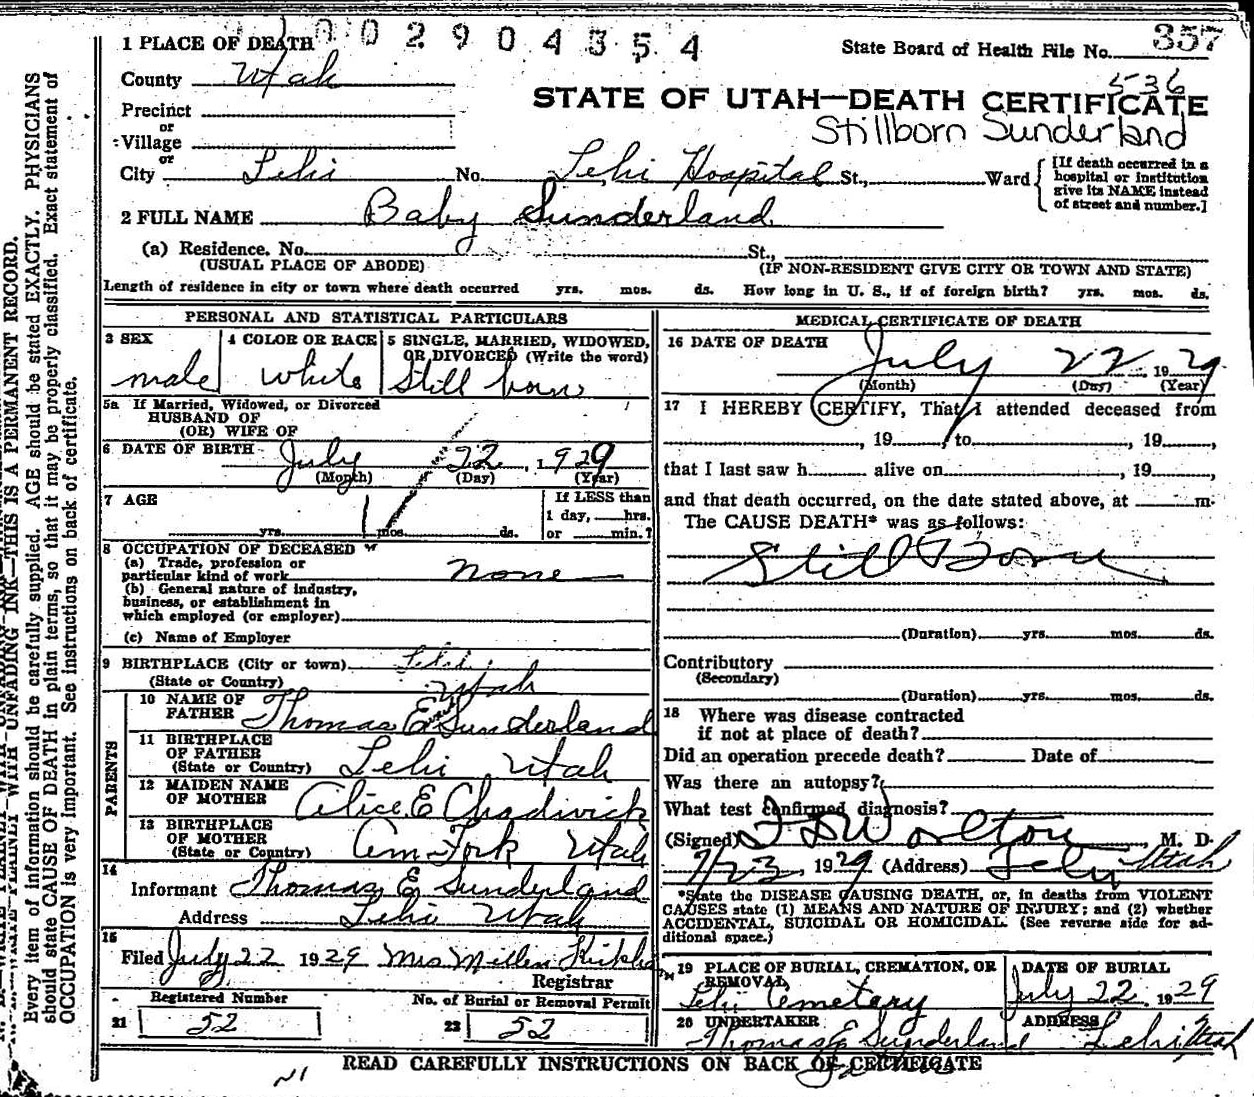 0 0 2 9 0 4 3 5 4
1 PLACE OF DEATH
State Board of Health File No. 357
County Utah
536
STATE OF UTAH—DEATH CERTIFICATE
Precinct
or
Village
Stillborn Sunderland
or
City Lehi No. Lehi Hospital St., Ward
[If death occurred in a
hospital or institution
give its NAME instead
of street and number.]
2 FULL NAME Baby Sunderland
(a) Residence. No. St.,
(USUAL PLACE OF ABODE) (IF NON-RESIDENT GIVE CITY OR TOWN AND STATE)
Length of residence in city or town where death occurred yrs. mos. ds. How long in U. S., if of foreign birth? yrs. mos. ds.
PERSONAL AND STATISTICAL PARTICULARS
3 SEX
male
4 COLOR OR RACE
White
5 SINGLE, MARRIED, WIDOWED,
OR DIVORCED (Write the word)
Still born
5a If Married, Widowed, or Divorced
HUSBAND OF
(OR) WIFE OF
6 DATE OF BIRTH July 22, 1929
(Month) (Day) (Year)
7 AGE
yrs. mos. ds.
If LESS than
1 day, hrs.
or min.?
8 OCCUPATION OF DECEASED
(a) Trade, profession or
particular kind of work none
(b) General nature of industry,
business, or establishment in
which employed (or employer)
(c) Name of Employer
9 BIRTHPLACE (City or town) Lehi
(State or Country) Utah
PARENTS
10 NAME OF
FATHER Thomas E Sunderland
11 BIRTHPLACE
OF FATHER
(State or Country) Lehi Utah
12 MAIDEN NAME
OF MOTHER Alice E Chadwick
13 BIRTHPLACE
OF MOTHER
(State or Country) Am Fork Utah
14
Informant Thomas E Sunderland
Address Lehi Utah
15
Filed July 22 1929 Mrs
Registrar
Registered Number
21 52
No. of Burial or Removal Permit
22 52
MEDICAL CERTIFICATE OF DEATH
16 DATE OF DEATH
July 22 1929
(Month) (Day) (Year)
17 I HEREBY CERTIFY, That I attended deceased from
, 19 to , 19 ,
that I last saw h alive on , 19 ,
and that death occurred, on the date stated above, at m.
The CAUSE DEATH* was as follows:
Still Born
(Duration) yrs. mos. ds.
Contributory
(Secondary)
(Duration) yrs. mos. ds.
18 Where was disease contracted
if not at place of death?
Did an operation precede death? Date of
Was there an autopsy?
What test confirmed diagnosis?
(Signed) Worlton, M. D.
7/23 1929 (Address) Lehi Utah
*State the DISEASE CAUSING DEATH, or, in deaths from VIOLENT
CAUSES state (1) MEANS AND NATURE OF INJURY; and (2) whether
ACCIDENTAL, SUICIDAL OR HOMICIDAL. (See reverse side for ad-
ditional space.)
19 PLACE OF BURIAL, CREMATION, OR
REMOVAL
Lehi Cemetery
DATE OF BURIAL
July 22 1929
20 UNDERTAKER
Thomas E Sunderland
Father
ADDRESS
Lehi Utah
READ CAREFULLY INSTRUCTIONS ON BACK OF CERTIFICATE
WRITE PLAINLY WITH UNFADING INK—THIS IS A PERMANENT RECORD.
Every item of information should be carefully supplied. AGE should be stated EXACTLY. PHYSICIANS
should state CAUSE OF DEATH in plain terms, so that it may be properly classified. Exact statement of
OCCUPATION is very important. See instructions on back of certificate.